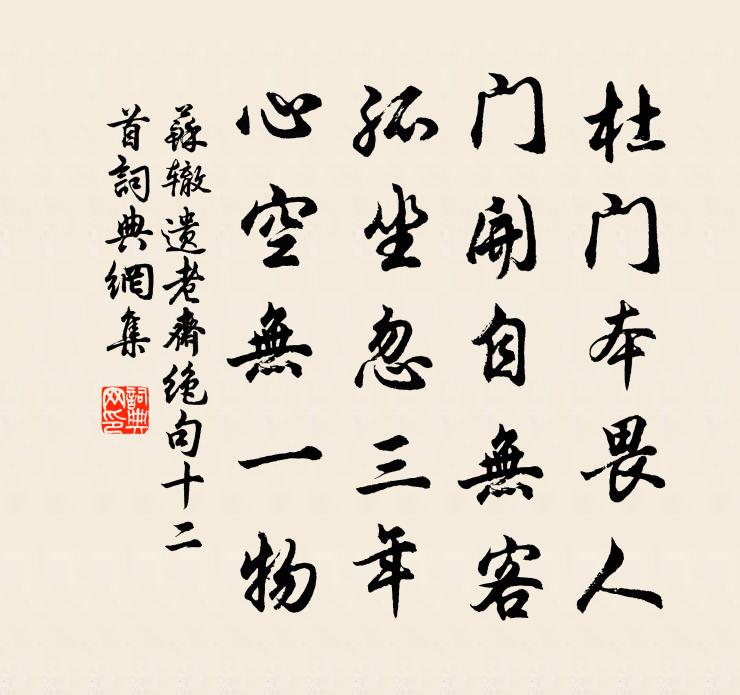 杜门本畏人
门開自無客
孤坐忽三年
心空無一物
蘇辙遺老齋绝句十二
首詞典網集
詞典网印